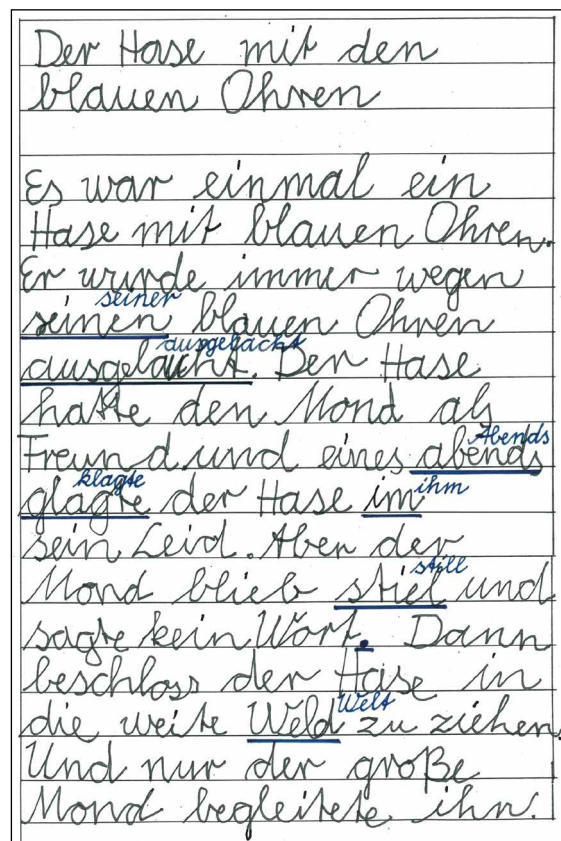 Der Hase mit den
blauen Ohren
Es war einmal ein
Hase mit blauen Ohren.
Er wurde immer wegen
seiner
seinen blauen Ohren
ausgelacht
ausgelaucht. Der Hase
hatte den Mond als
Abends
Freund und eines abends
klagte ihm
glagte der Hase im
sein Leid. Aber der
still
Mond blieb stiel und
sagte kein Wort. Dann
beschloss der Hase in
Welt
die weite Weld zu ziehen.
Und nur der große
Mond begleitete ihn.